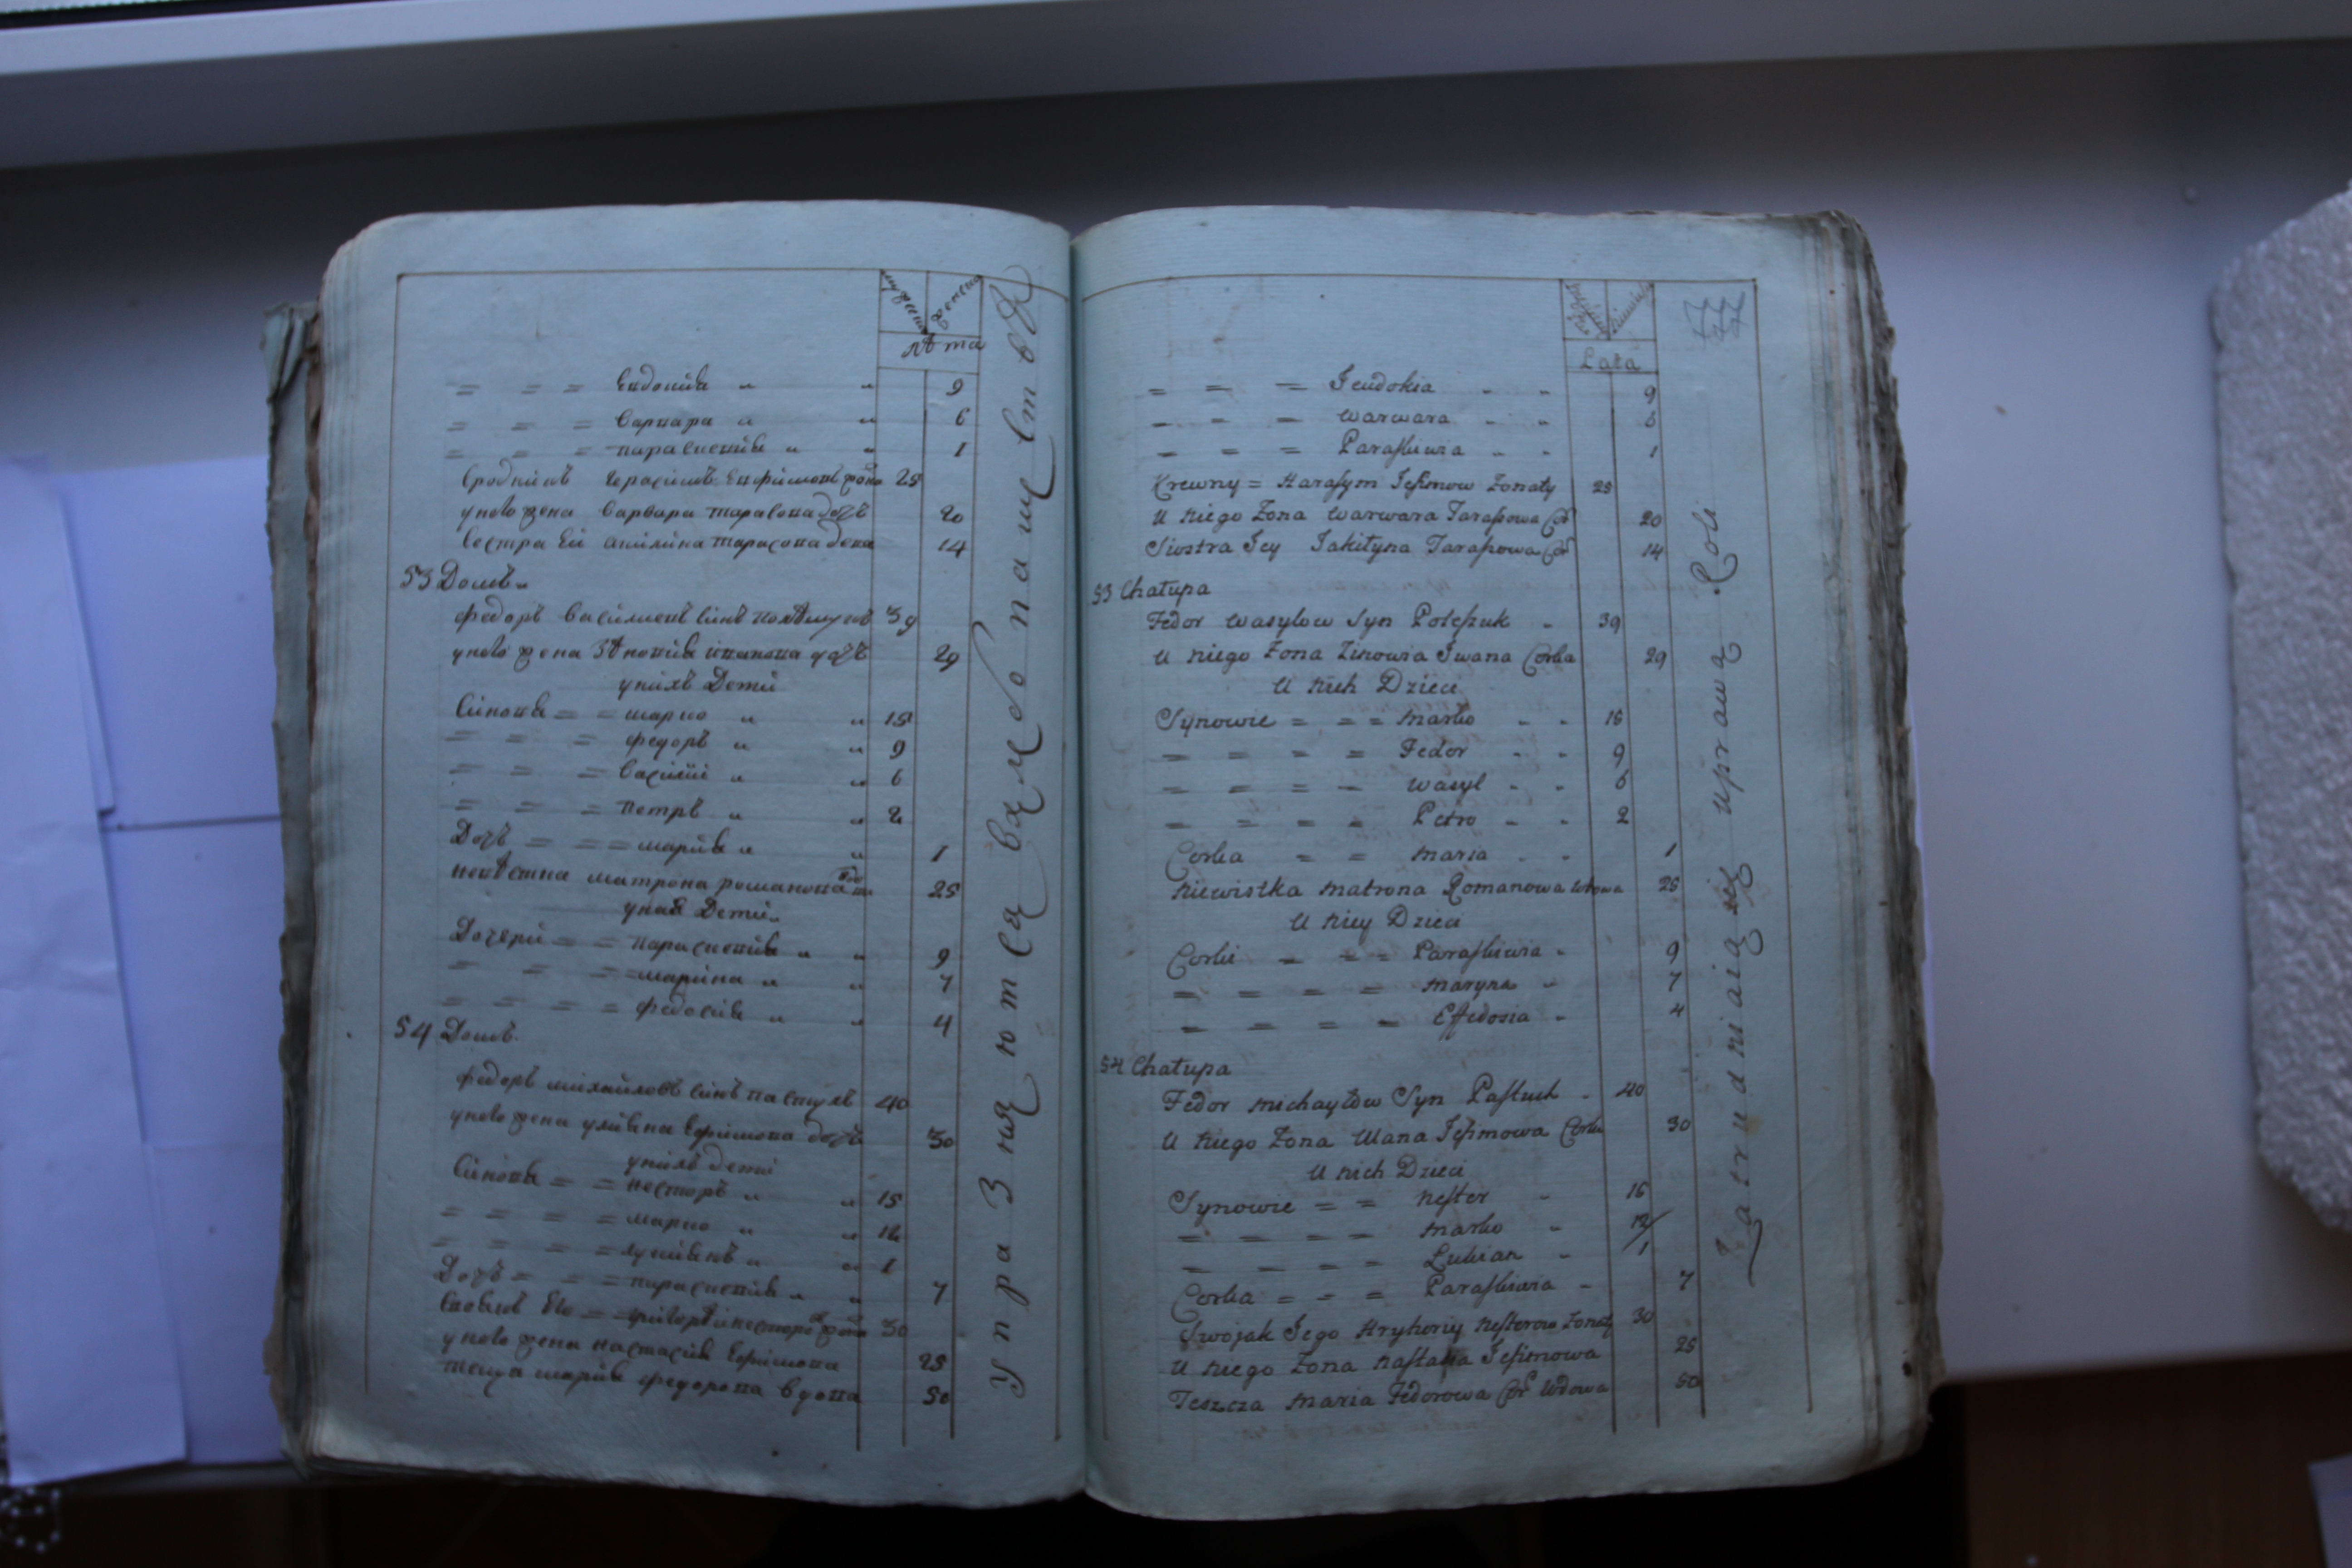 лѣта
= = = Евдокия " " 9
= = = Варвара " " 6
= = = Параскевия " " 1
Сродникъ Герасимъ Ефимовъ жона 25
у него жена Варвара Тарасова дочь 20
Сестра Ей Акилина Тарасова 14
53 Домъ
Федоръ Василиевъ Синъ Полѣшукъ 39
у него жена Зѣновия Иванова дочь 29
у нихъ Дети
Синовя = = Марко " " 15
= = = Федоръ " " 9
= = = Василий " " 6
= = = Петръ " " 2
Дочь = = = Мария " " 1
невѣстка Матрона Романова 25
у ней Дети
Дочери = = Параскевия " " 9
= = = = Марина " " 7
= = = = Федосия " " 4
54 Домъ
Федоръ Михайловъ Синъ Пастухъ 40
у него жена Улияна Ефимова дочь 30
у нихъ Дети
Синовя = = Несторъ " " 15
= = = = Марко " " 12
= = = = Лукиянъ " " 1
Дочь = = = Параскевия " " 7
Своякъ Его = Григорий Несторо 30
у него жена Настасия Ефимова 25
теща Мария Федорова вдова 50
Упражняются вхлебопашествѣ
77
Lata
= = = Jeudokia " " 9
= = = Warwara " " 6
= = = Paraskiwia " " 1
Krewny = Harasym Jefimow Zonaty 25
U niego Zona Warwara Tarasowa Cor 20
Siostra Jey Jakilyna Tarasowa Cor 14
53 Chałupa
Fedor Wasylow Syn Poleszuk " 39
U niego Zona Zinowia Jwana Corka 29
U nich Dzieci
Synowie = = = Marko " " 15
= = = = Fedor " " 9
= = = = Wasyl " " 6
= = = = Petro " " 2
Corka = = Maria " " 1
Niewistka Matrona Romanowa Wdowa 25
U niey Dzieci
Corki = = = Paraskiwia " 9
= = = = Maryna " 7
= = = = Effedosia " 4
54 Chałupa
Fedor Michayłow Syn Pastuch " 40
U niego Zona Ulana Jefimowa Corka 30
U nich Dzieci
Synowie = = Nester " 15
= = = = Marko " 12
= = = = Lukian " 1
Corka = = = Paraskiwia " 7
Swojak Jego Hryhoriy Nesterow Zonaty 30
U niego Zona Nastasia Jefimowa 25
Teszcza Maria Fedorowa Cor Wdowa 50
Zatrudniaią się uprawą Roli